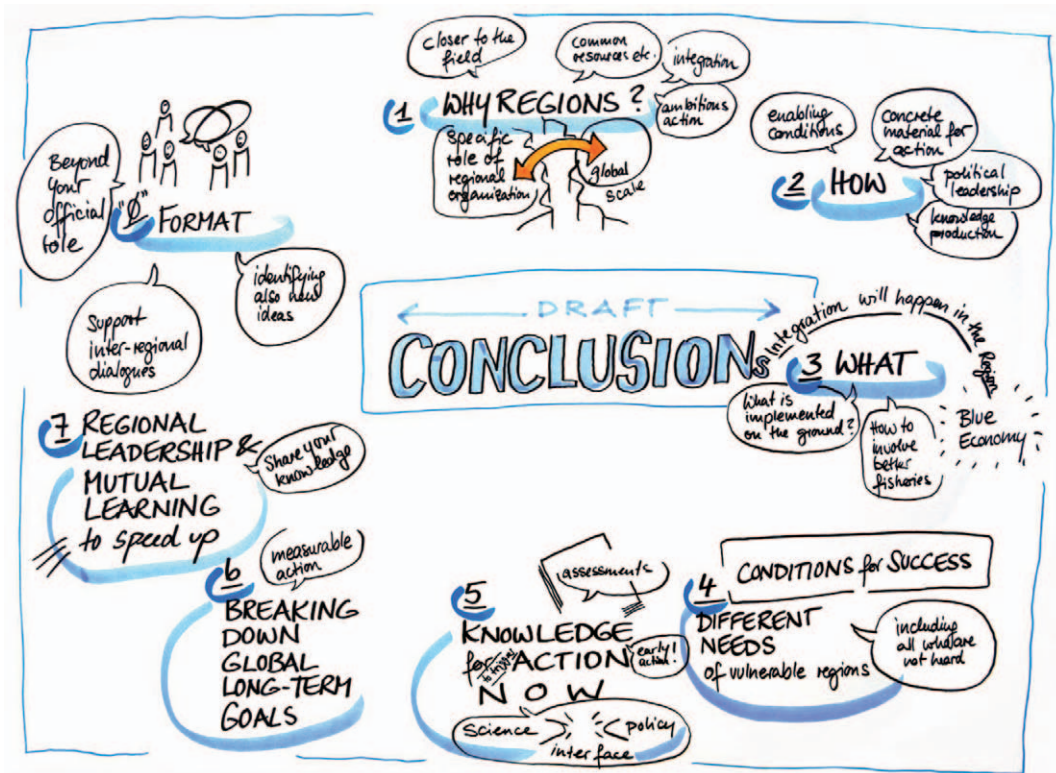 DRAFT
CONCLUSIONs
"0"
FORMAT
Beyond
your
official
role
identifying
also new
ideas
Support
inter-regional
dialogues
1
WHY REGIONS?
closer to the
field
common
resources etc.
integration
ambitions
action
Specific
role of
regional
organization
global
scale
2
HOW
enabling
conditions
concrete
material for
action
political
leadership
knowledge
production
3 WHAT
Integration will happen in the Region
What is
implemented
on the ground?
How to
involve
better
fisheries
Blue
Economy
4
CONDITIONS for SUCCESS
DIFFERENT
NEEDS
of vulnerable regions
including
all what are
not heard
5
assessments
KNOWLEDGE
for to trigger ACTION
early
action!
NOW
science
policy
interface
6
measurable
action
BREAKING
DOWN
GLOBAL
LONG-TERM
GOALS
7 REGIONAL
LEADERSHIP &
MUTUAL
LEARNING
to speed up
Share your
knowledge